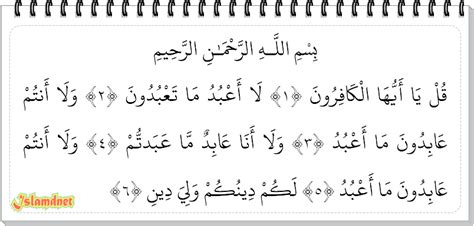 بِسْمِ اللَّـهِ الرَّحْمَـٰنِ الرَّحِيمِ
قُلْ يَا أَيُّهَا الْكَافِرُونَ ﴿١﴾ لَا أَعْبُدُ مَا تَعْبُدُونَ ﴿٢﴾ وَلَا أَنتُمْ
عَابِدُونَ مَا أَعْبُدُ ﴿٣﴾ وَلَا أَنَا عَابِدٌ مَّا عَبَدتُّمْ ﴿٤﴾ وَلَا أَنتُمْ
عَابِدُونَ مَا أَعْبُدُ ﴿٥﴾ لَكُمْ دِينُكُمْ وَلِيَ دِينِ ﴿٦﴾
Islamdnet